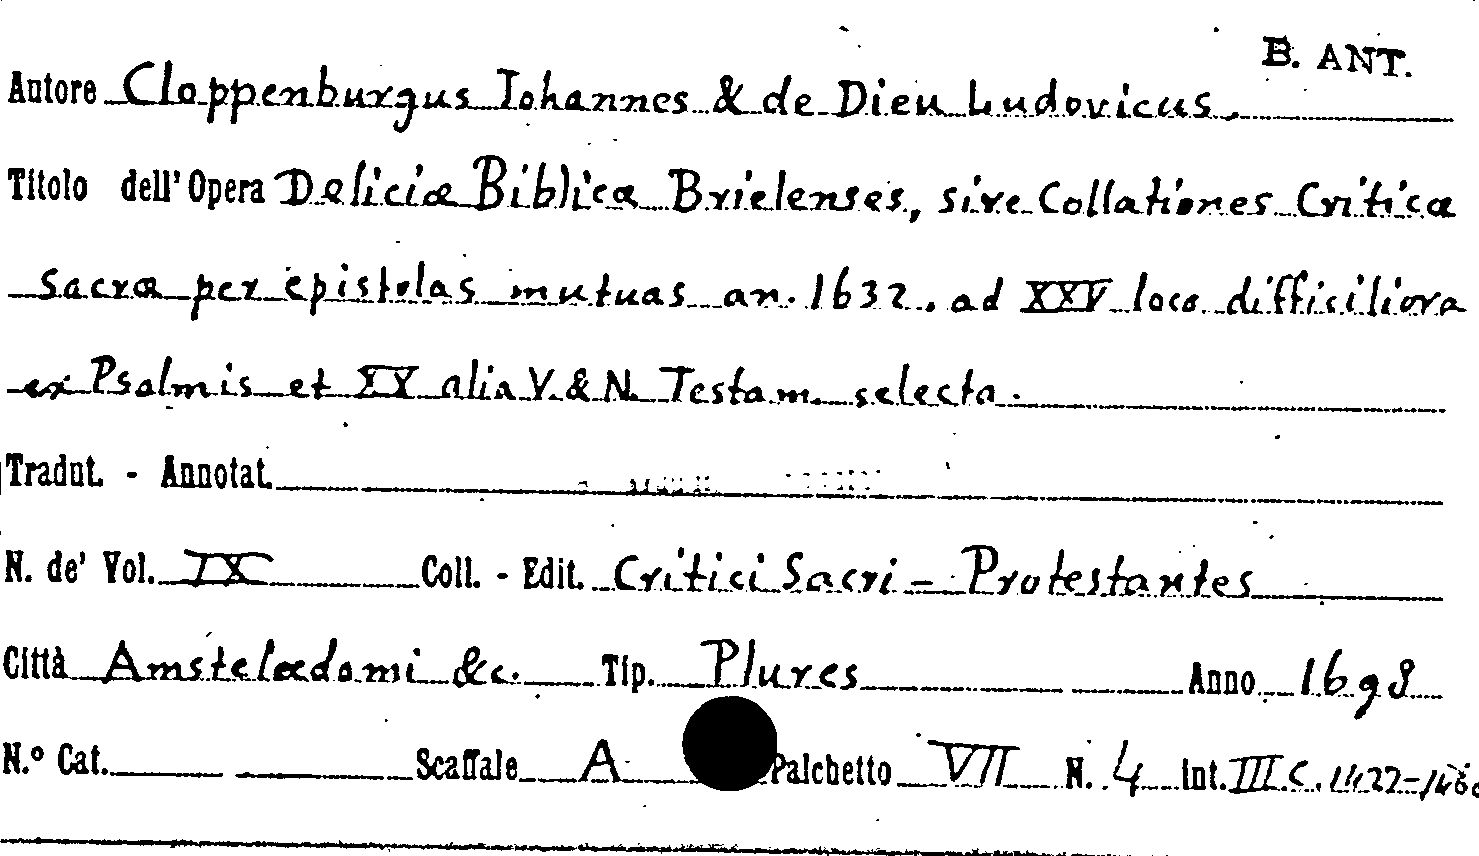 B. ANT.
Autore Cloppenburgus Iohannes & de Dieu Ludovicus.
Titolo dell' Opera Deliciæ Biblicæ Brielenses, sive Collationes Criticæ
sacræ per epistolas mutuas an. 1632. ad XXV loca difficiliora
ex Psalmis et XX alia V. & N. Testam. selecta.
Tradut. - Annotat.
N. de' Vol. IX Coll. - Edit. Critici Sacri - Protestantes
Città Amstelædami &c. Tip. Plures Anno 1698
N.º Cat. Scaffale A Palchetto VII N. 4 Int. III c. 1422-